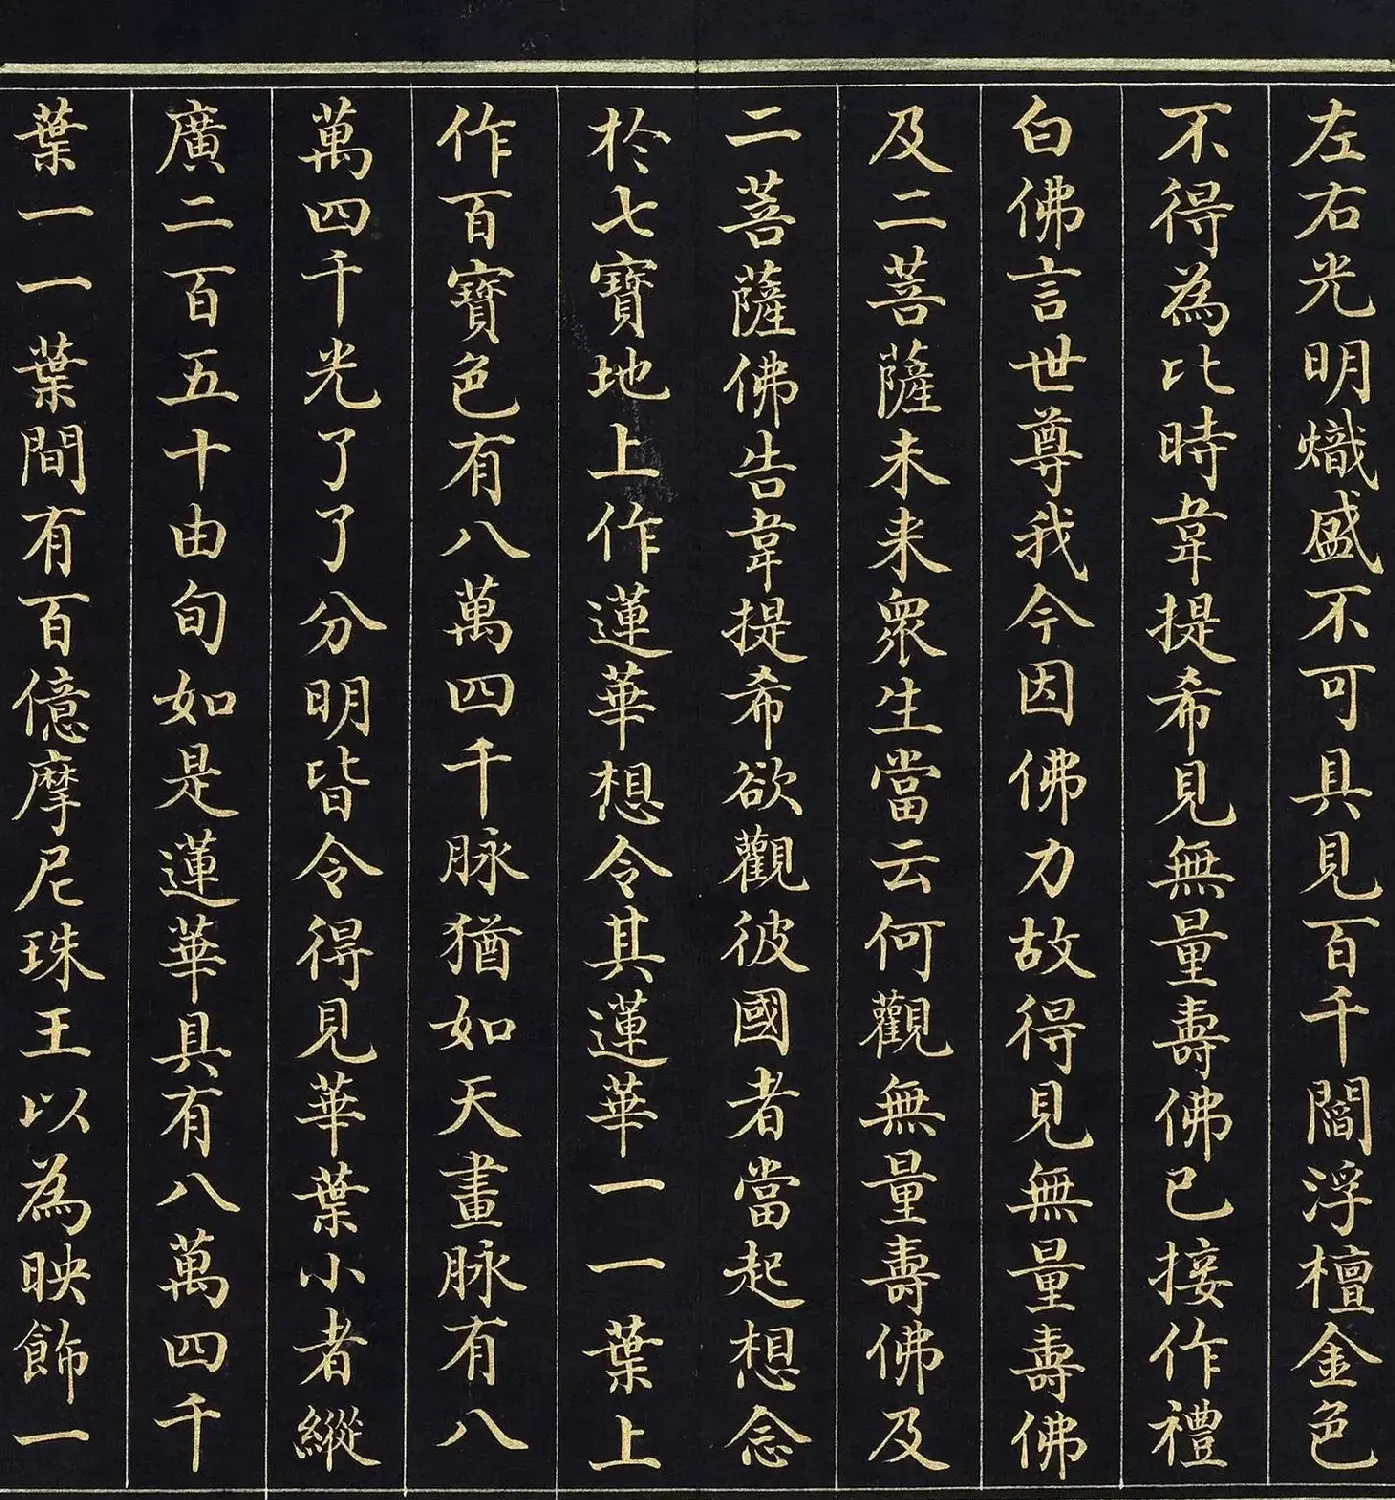 左右光明熾盛不可具見百千閻浮檀金色
不得為比時韋提希見無量壽佛已接作禮
白佛言世尊我今因佛力故得見無量壽佛
及二菩薩未来眾生當云何觀無量壽佛及
二菩薩佛告韋提希欲觀彼國者當起想念
於七寶地上作蓮華想令其蓮華一一葉上
作百寶色有八萬四千脉猶如天畫脉有八
萬四千光了了分明皆令得見華葉小者縱
廣二百五十由旬如是蓮華具有八萬四千
葉一一葉間有百億摩尼珠王以為映飾一